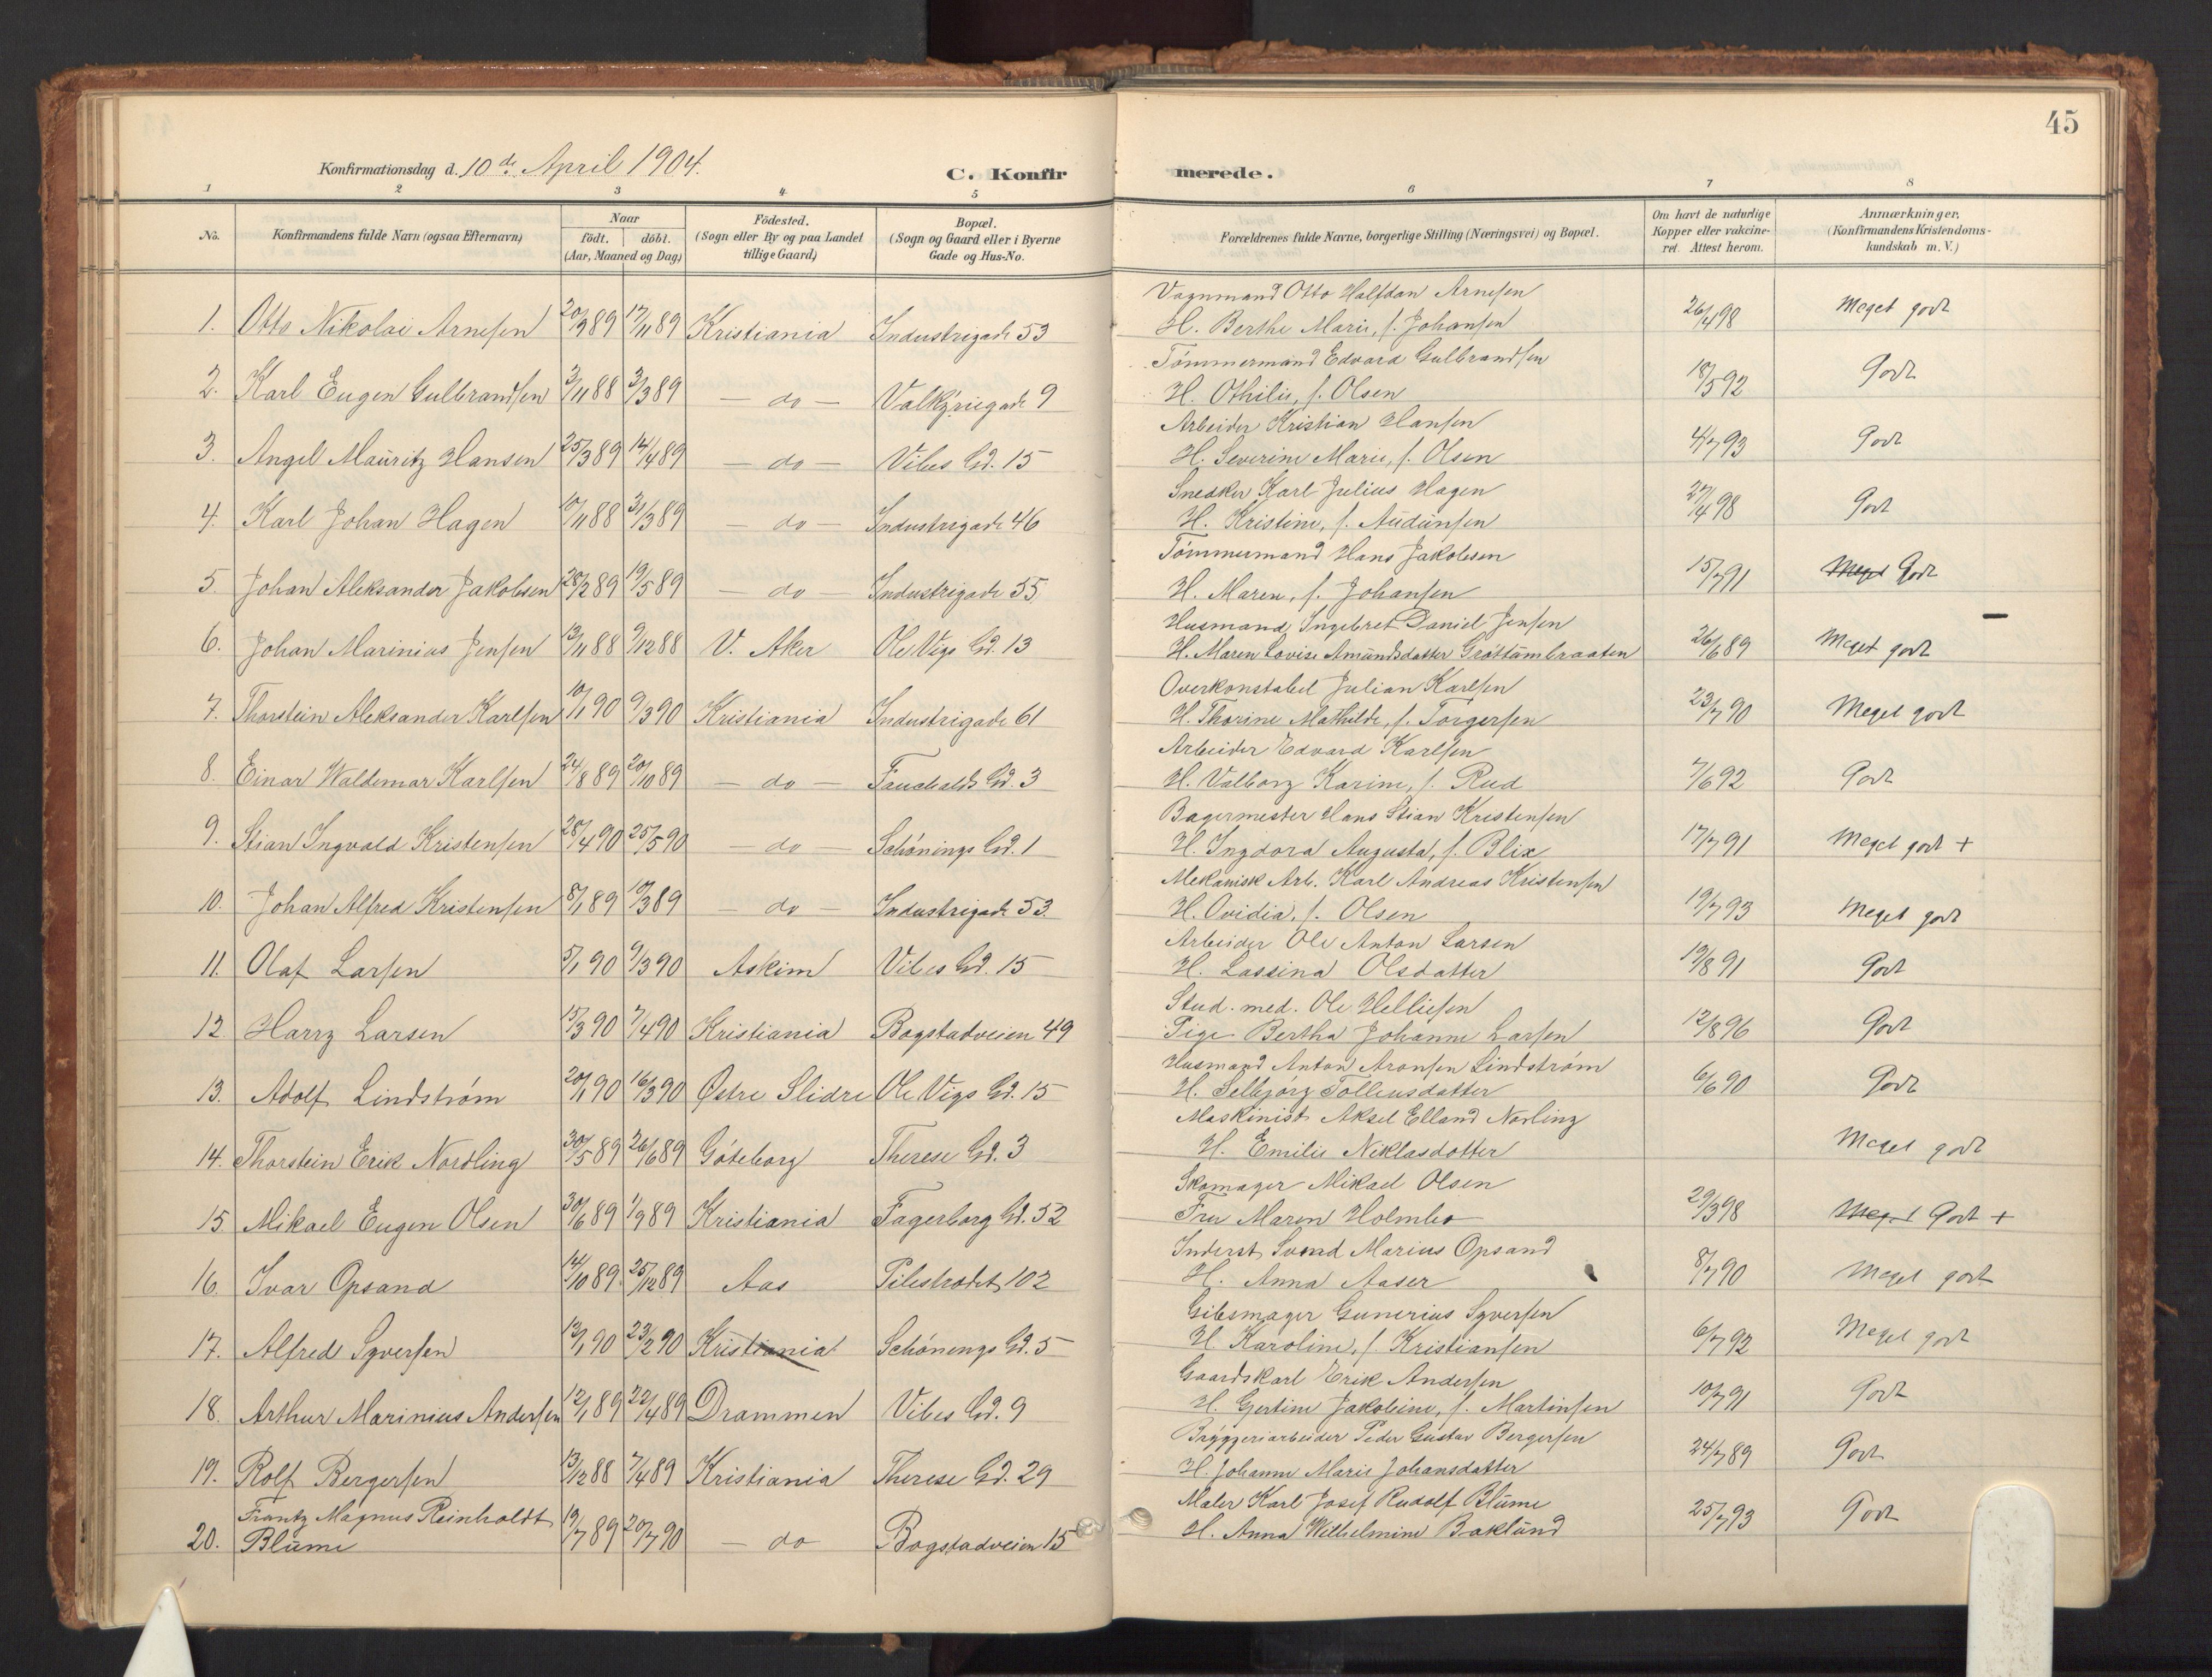 45
Konfirmationsdag d. 10de April 1904.
C. Konfirmerede.
1 2 3 4 5 6 7 8
No. Konfirmandens fulde Navn (ogsaa Efternavn) Naar födt. döbt. (Aar, Maaned og Dag) Födested. (Sogn eller By og paa Landet tillige Gaard) Bopæl. (Sogn og Gaard eller i Byerne Gade og Hus-No. Forældrenes fulde Navne, borgerlige Stilling (Næringsvei) og Bopæl. Om havt de naturlige Kopper eller vakcineret. Attest herom. Anmærkninger. (Konfirmandens Kristendomskundskab m. V.)
Vognmand Otto Halfdan Arnesen
1. Otto Nikolai Arnesen 20/9 89 17/11 89 Kristiania Industrigade 53 H. Berthe Marie, f. Johansen 26/4 98 Meget godt
Tømmermand Edvard Gulbrandsen
2. Karl Eugen Gulbrandsen 3/11 88 3/3 89 - do - Valkyriegade 9 H. Othilie, f. Olsen 18/5 92 Godt
Arbeider Kristian Hansen
3. Angel Mauritz Hansen 25/3 89 14/4 89 - do - Vibes Gd. 15 H. Severine Marie, f. Olsen 4/7 93 Godt
Snedker Karl Julius Hagen
4. Karl Johan Hagen 10/11 88 31/3 89 - do - Industrigade 46 H. Kristine, f. Audunsen 27/4 98 Godt
Tømmermand Hans Jakobsen
5. Johan Aleksander Jakobsen 28/2 89 19/5 89 - do - Industrigade 55 H. Maren, f. Johansen 15/7 91 Meget Godt
Husmand Ingebret Daniel Jensen
6. Johan Marinius Jensen 13/11 88 9/12 88 V. Aker Ole Vigs Gd. 13 H. Maren Lovise Amundsdatter Grøttumbraaten 26/6 89 Meget godt
Overkonstabel Julian Karlsen
7. Thorstein Aleksander Karlsen 10/1 90 9/3 90 Kristiania Industrigade 61 H. Thorine Mathilde, f. Torgersen 23/7 90 Meget godt
Arbeider Edvard Karlsen
8. Einar Waldemar Karlsen 24/8 89 20/10 89 - do - Fauchalds Gd. 3 H. Valborg Karine, f. Rud 7/6 92 Godt
Bagermester Hans Stian Kristensen
9. Stian Ingvald Kristensen 28/4 90 25/5 90 - do - Schönings Gd. 1 H. Ingdora Augusta, f. Blix 17/7 91 Meget godt +
Mekanisk Arb. Karl Andreas Kristensen
10. Johan Alfred Kristensen 8/1 89 10/3 89 - do - Industrigade 53 H. Ovidia, f. Olsen 19/7 93 Meget godt
Arbeider Ole Anton Larsen
11. Olaf Larsen 5/1 90 9/3 90 Askim Vibes Gd. 15 H. Lassina Olsdatter 19/8 91 Godt
Stud. med. Ole Helliesen
12. Harry Larsen 15/3 90 7/4 90 Kristiania Bogstadveien 49 Pige Bertha Johanne Larsen 12/8 96 Godt
Husmand Anton Aronsen Lindstrøm
13. Adolf Lindstrøm 20/1 90 16/3 90 Østre Slidre Ole Vigs Gd. 15 H. Selbjörg Tollensdatter 6/6 90 Godt
Maskinist Aksel Elland Norling
14. Thorstein Erik Nordling 30/5 89 26/6 89 Göteborg Therese Gd. 3 H. Emilie Niklasdotter Meget godt
Skomager Mikael Olsen
15. Mikael Eugen Olsen 30/6 89 1/9 89 Kristiania Fagerborg Gd. 52 Fru Maren Holmbo 29/3 98 Meget Godt +
Inderst Svend Marius Opsand
16. Ivar Opsand 14/10 89 25/12 89 Aas Pilestrædet 102 H. Anna Aaser 8/7 90 Meget godt
Gibsmager Gunerius Syversen
17. Alfred Syversen 13/1 90 23/2 90 Kristiania Schönings Gd. 5 H. Karoline, f. Kristiansen 6/7 92 Meget godt
Gaardskarl Erik Andersen
18. Arthur Marinius Andersen 12/1 89 22/4 89 Drammen Vibes Gd. 9 H. Gertine Jakobine, f. Martinsen 10/7 91 Godt
Bryggeriarbeider Peder Gustav Bergersen
19. Rolf Bergersen 13/12 88 7/4 89 Kristiania Therese Gd. 29 H. Johanne Marie Johansdatter 24/7 89 Godt
Frantz Magnus Reinholdt Maler Karl Josef Rudolf Blume
20. Blume 19/7 89 20/7 90 - do Bogstadveien 15 H. Anna Wilhelmine Baklund 25/7 93 Godt